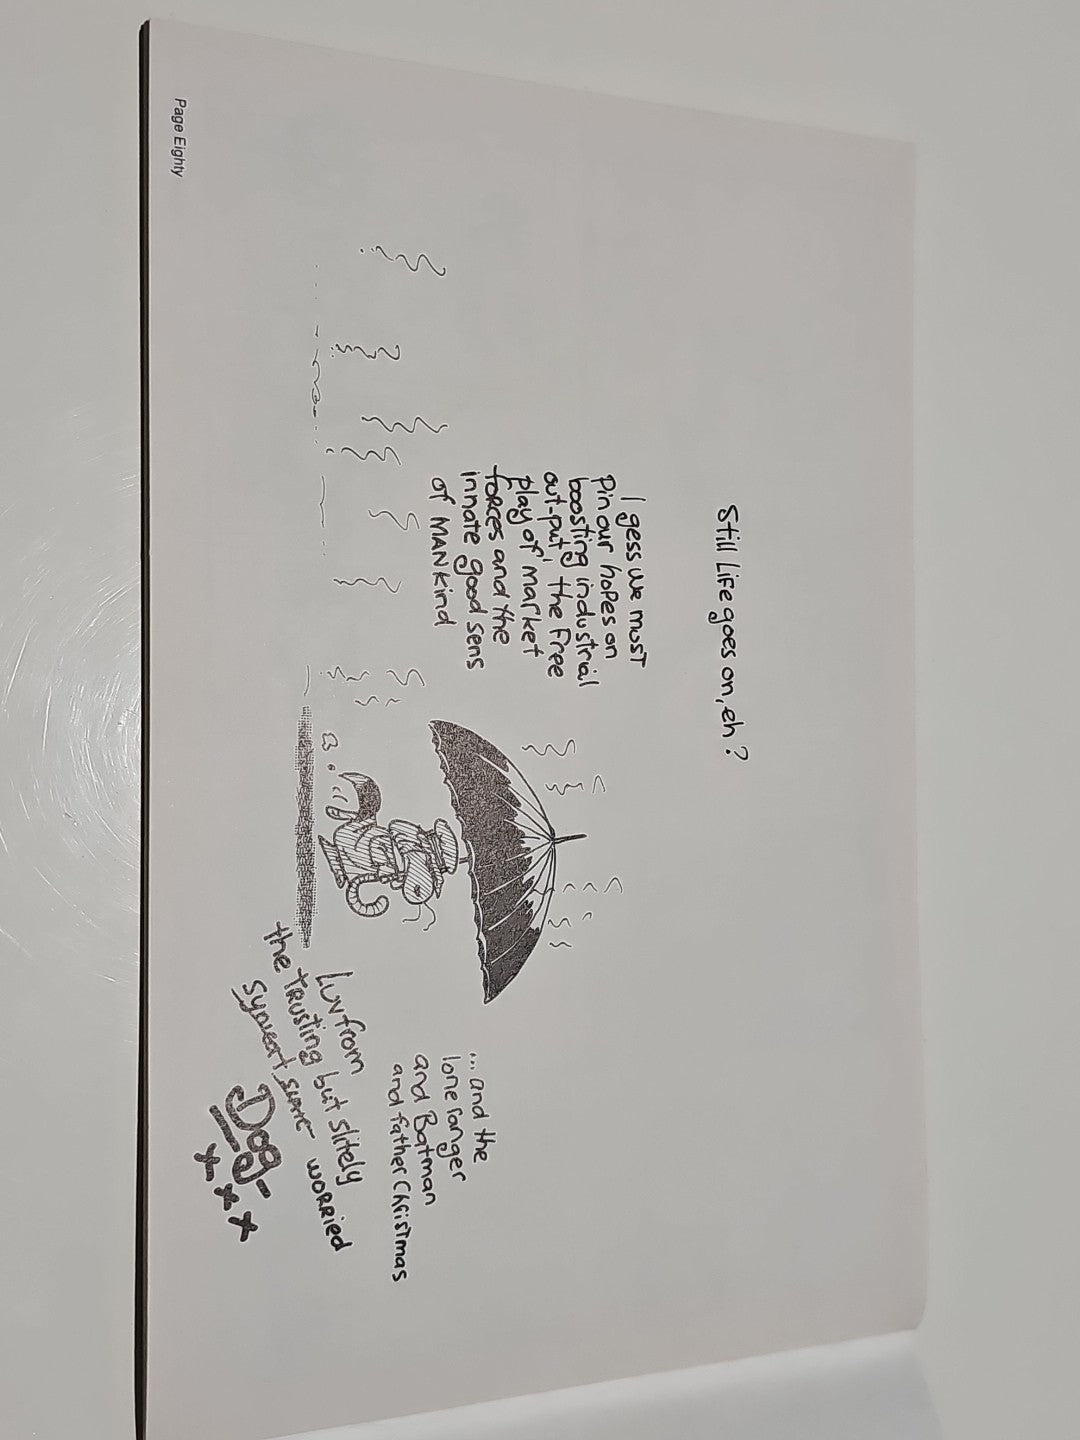 Still Life goes on, eh?
I gess we must
Pin our hopes on
boosting industrial
out-put, the Free
play of market
forces and the
innate good sens
of MANkind
...and the
lone ranger
and Batman
and father Christmas
Luv from
the TRUSTing but slitely
worried
Dog
x x x
Page Eighty